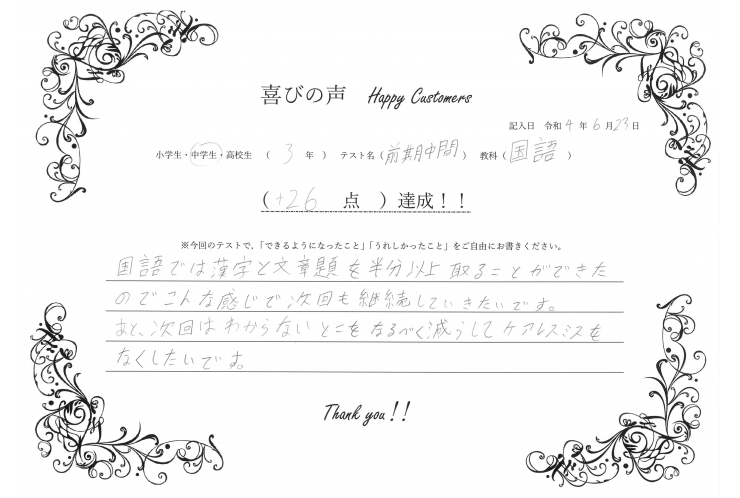 喜びの声 Happy Customers
記入日 令和 4 年 6 月 23 日
小学生・中学生・高校生 ( 3 年 ) テスト名 ( 前期中間 ) 教科 ( 国語 )
( +26 点 ) 達成！！
※今回のテストで、「できるようになったこと」「うれしかったこと」をご自由にお書きください。
国語では漢字と文章題を半分以上取ることができた
のでこんな感じで次回も継続していきたいです。
あと、次回はわからないとこをなるべく減らしてケアレスミスを
なくしたいです。
Thank you!!